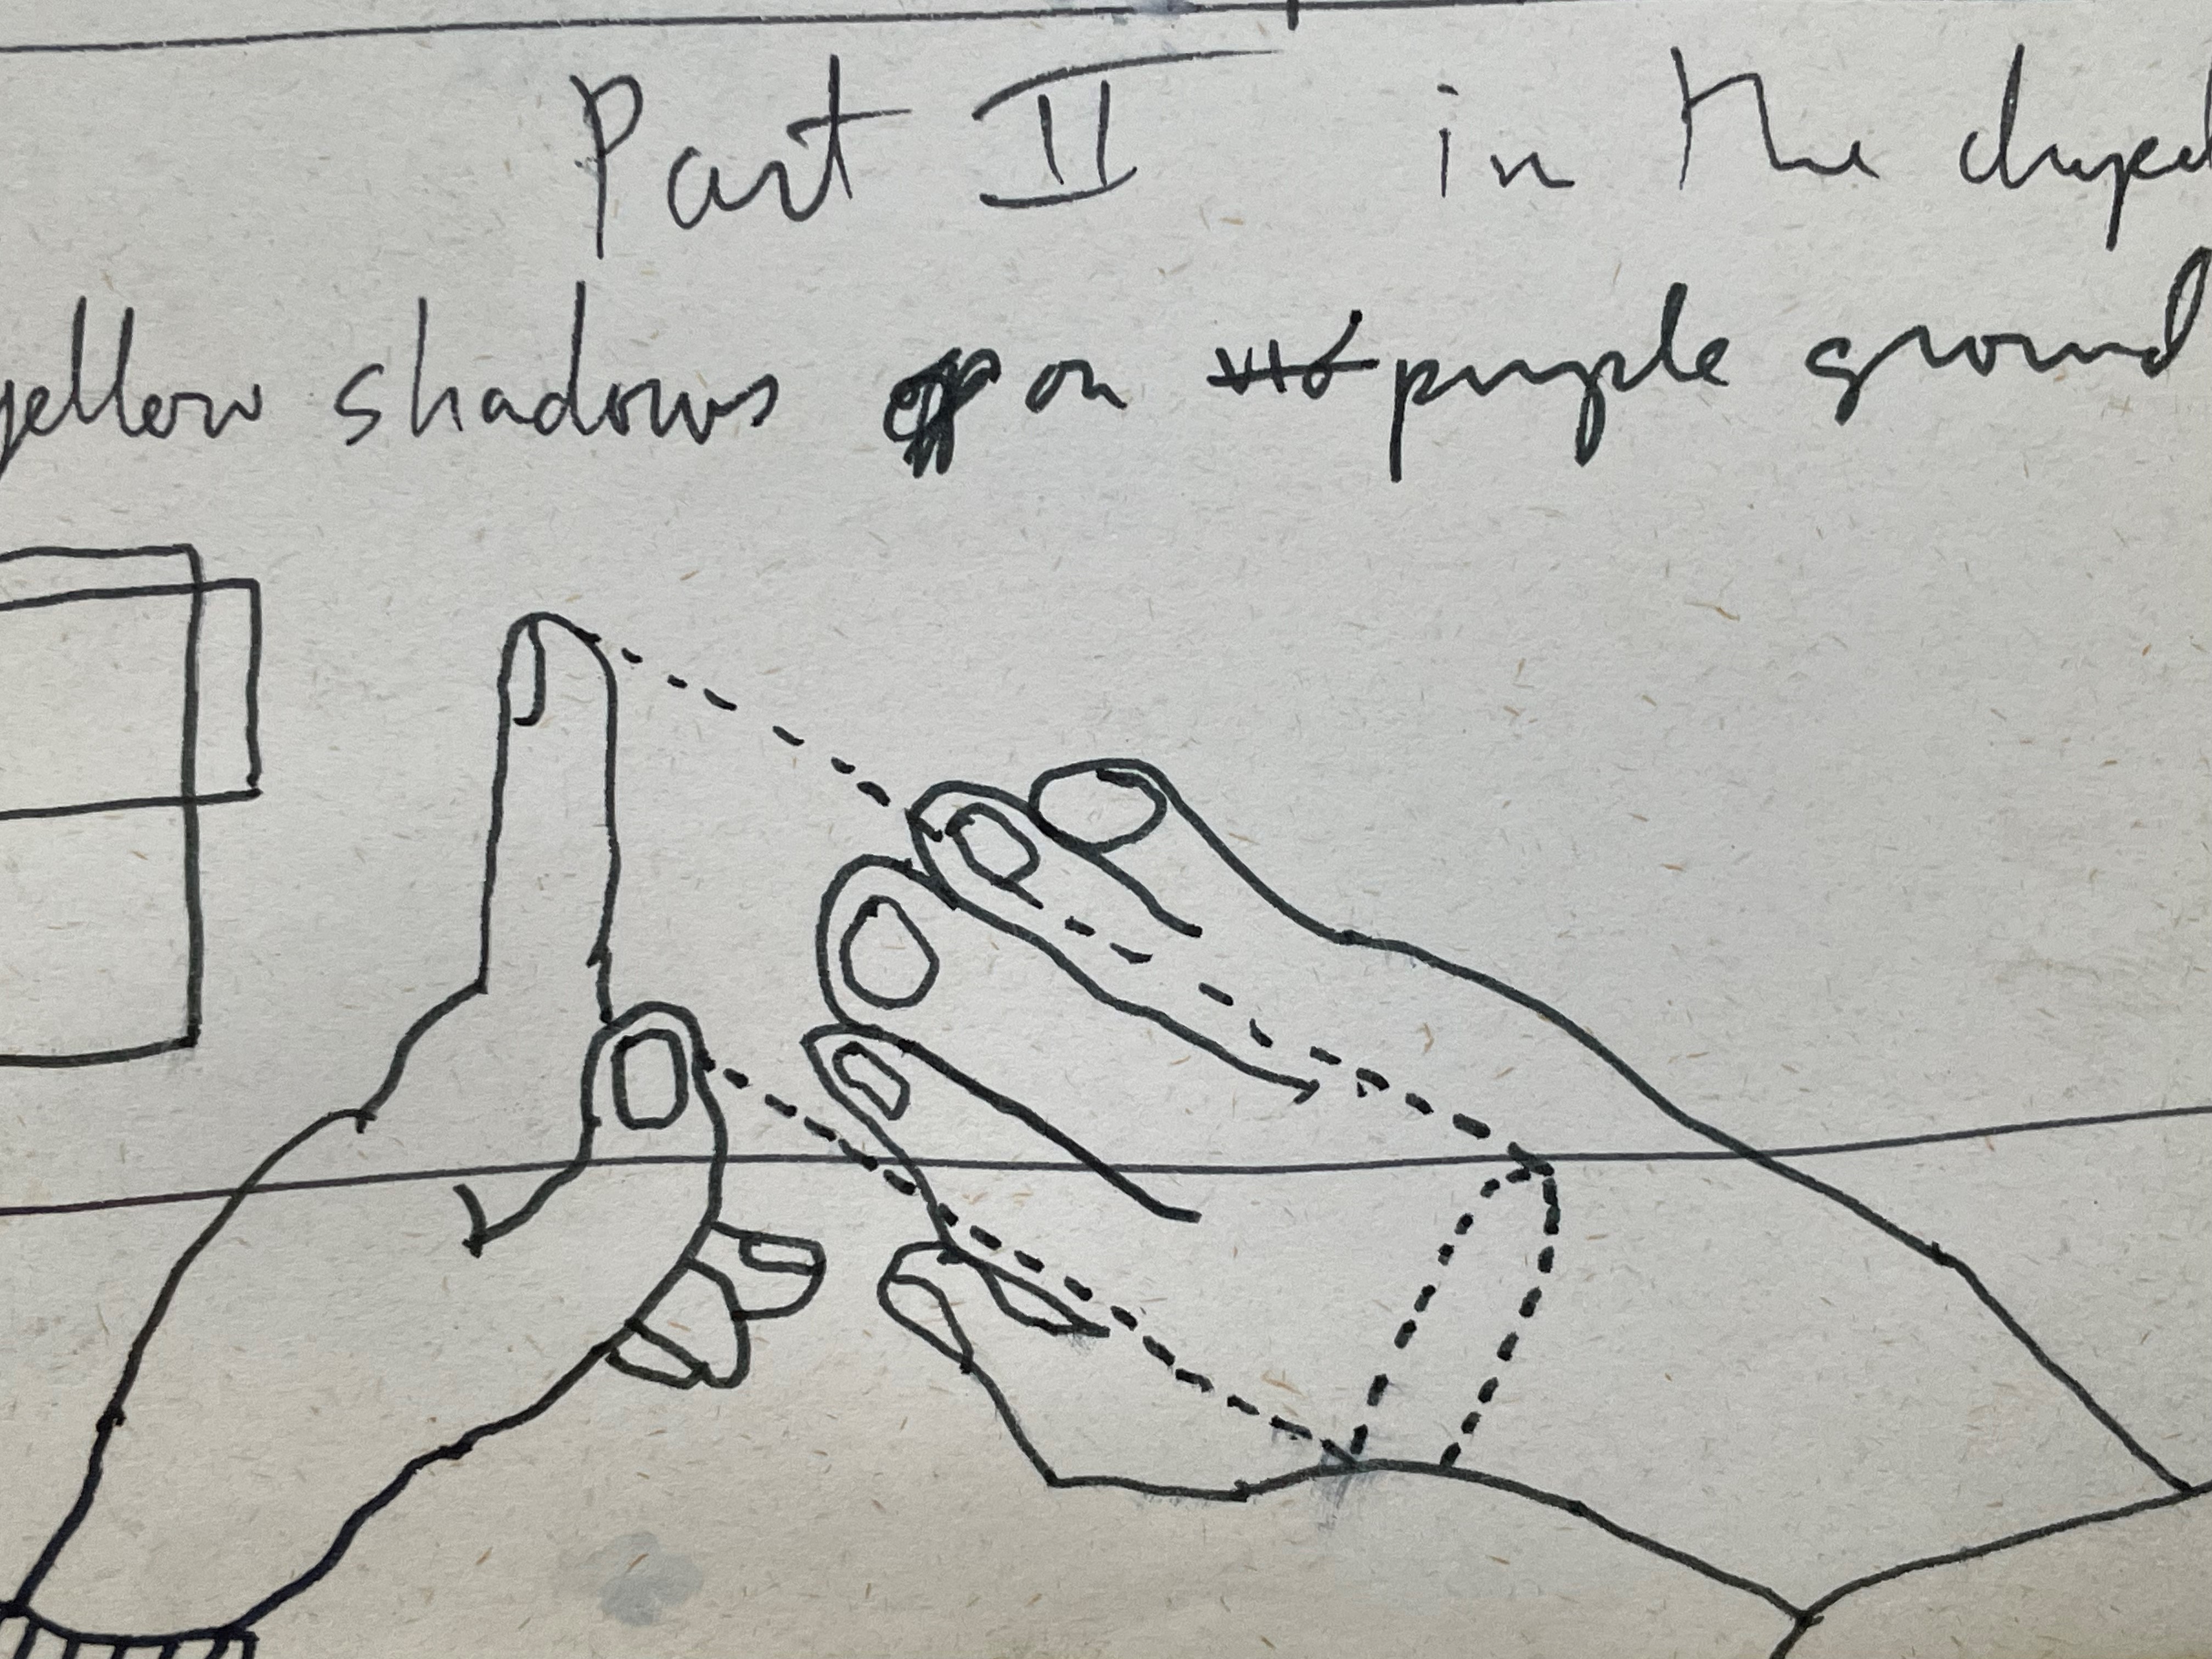 Part II in the
yellow shadows on purple ground